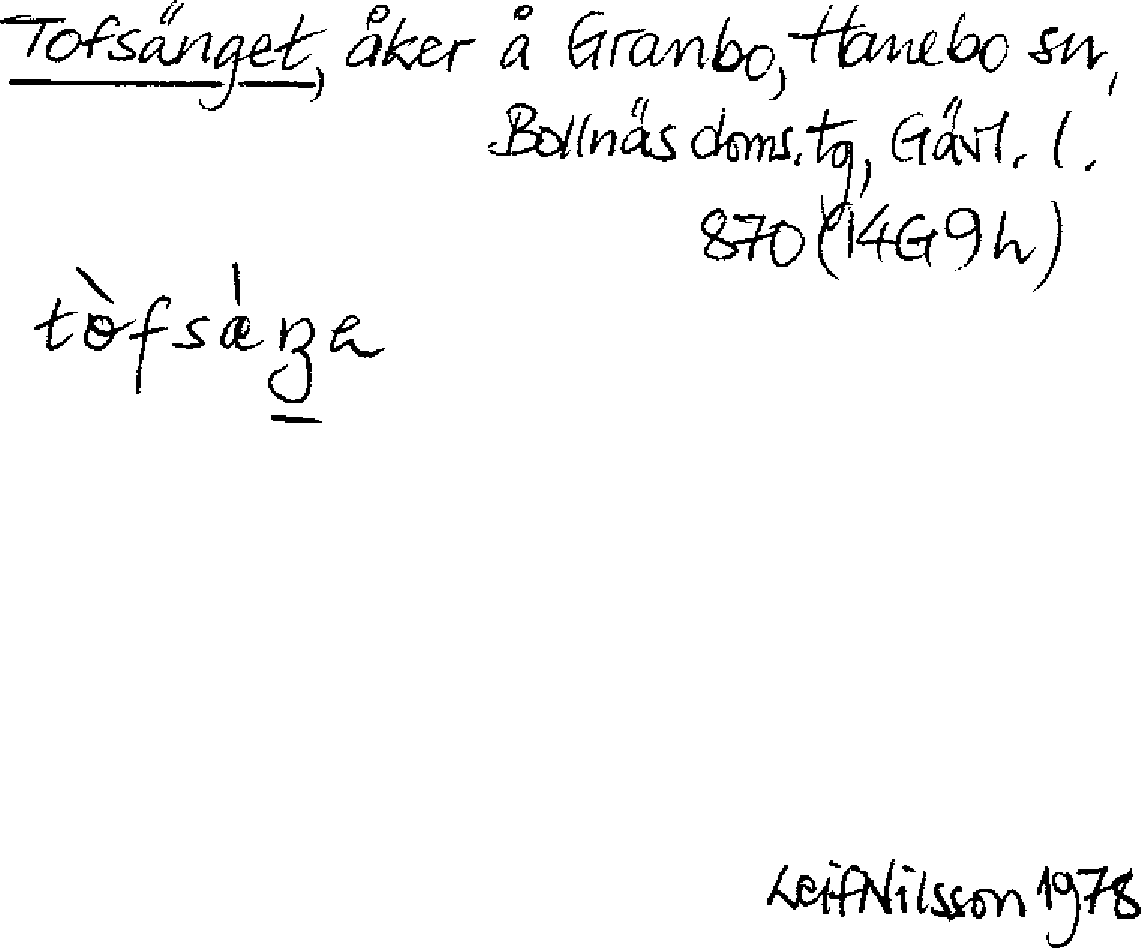 Tofsänget, åker å Granbo, Hanebo sn,
Bollnäs doms. tg, Gävl. l.
870 (14G 9h)
Leif Nilsson 1978